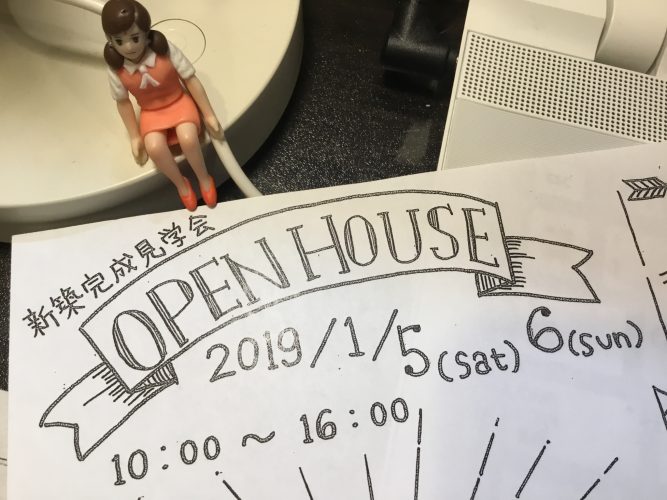 新築完成見学会
OPEN HOUSE
2019/1/5(sat) 6(sun)
10:00 ～ 16:00